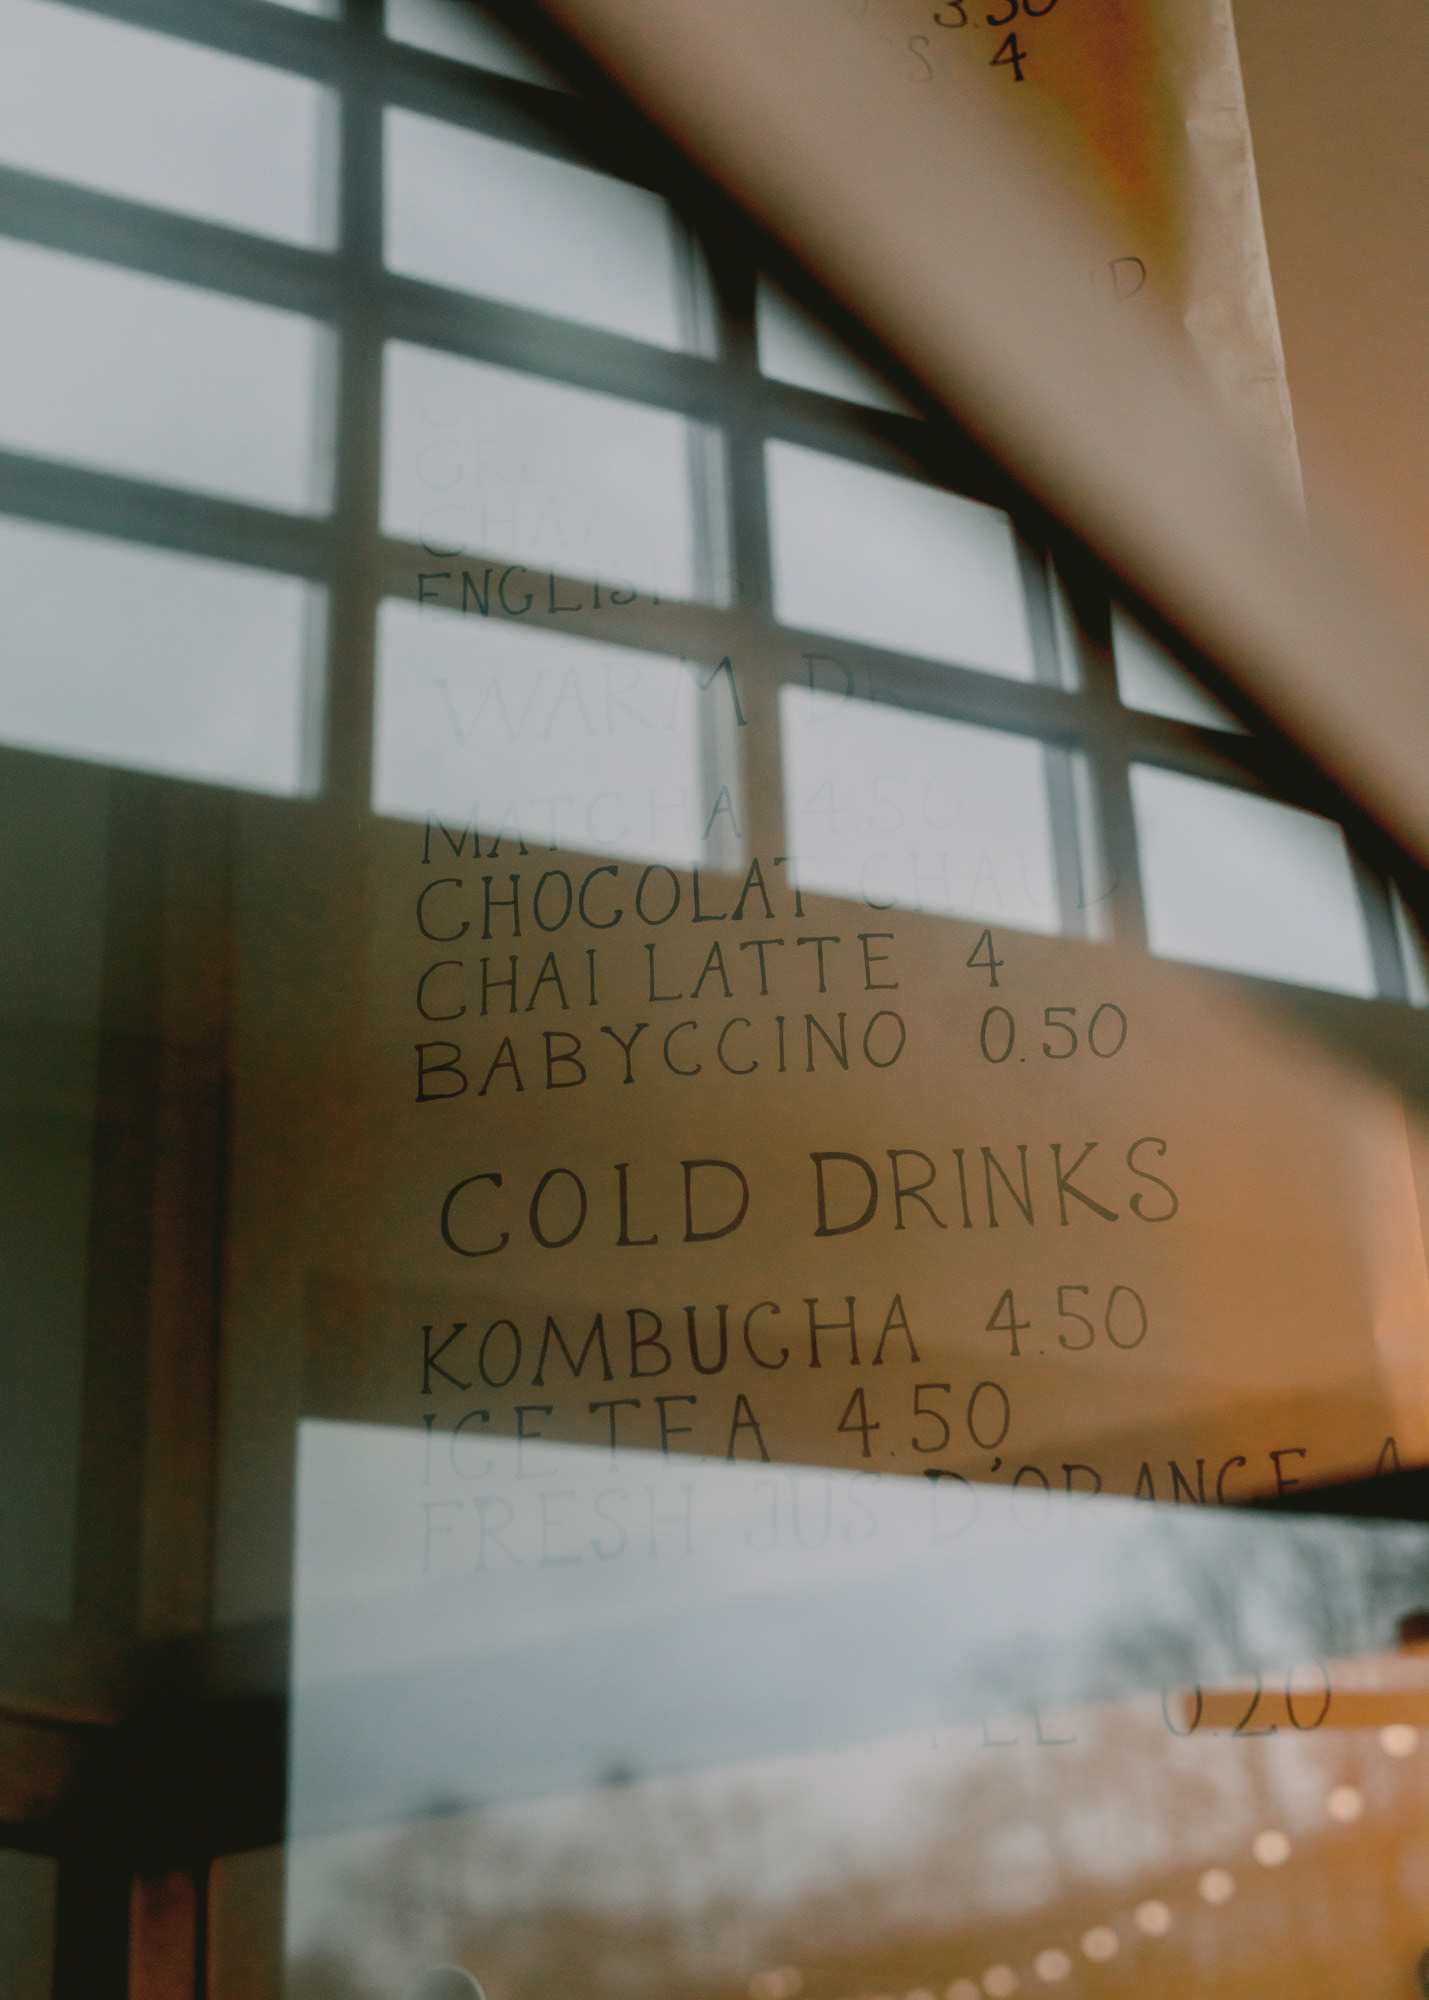 3.50
4
CHAI
ENGLISH
WARM
MATCHA 4.50
CHOCOLAT CHAUD
CHAI LATTE 4
BABYCCINO 0.50
COLD DRINKS
KOMBUCHA 4.50
ICE TEA 4.50
FRESH JUS D'ORANGE
0.20